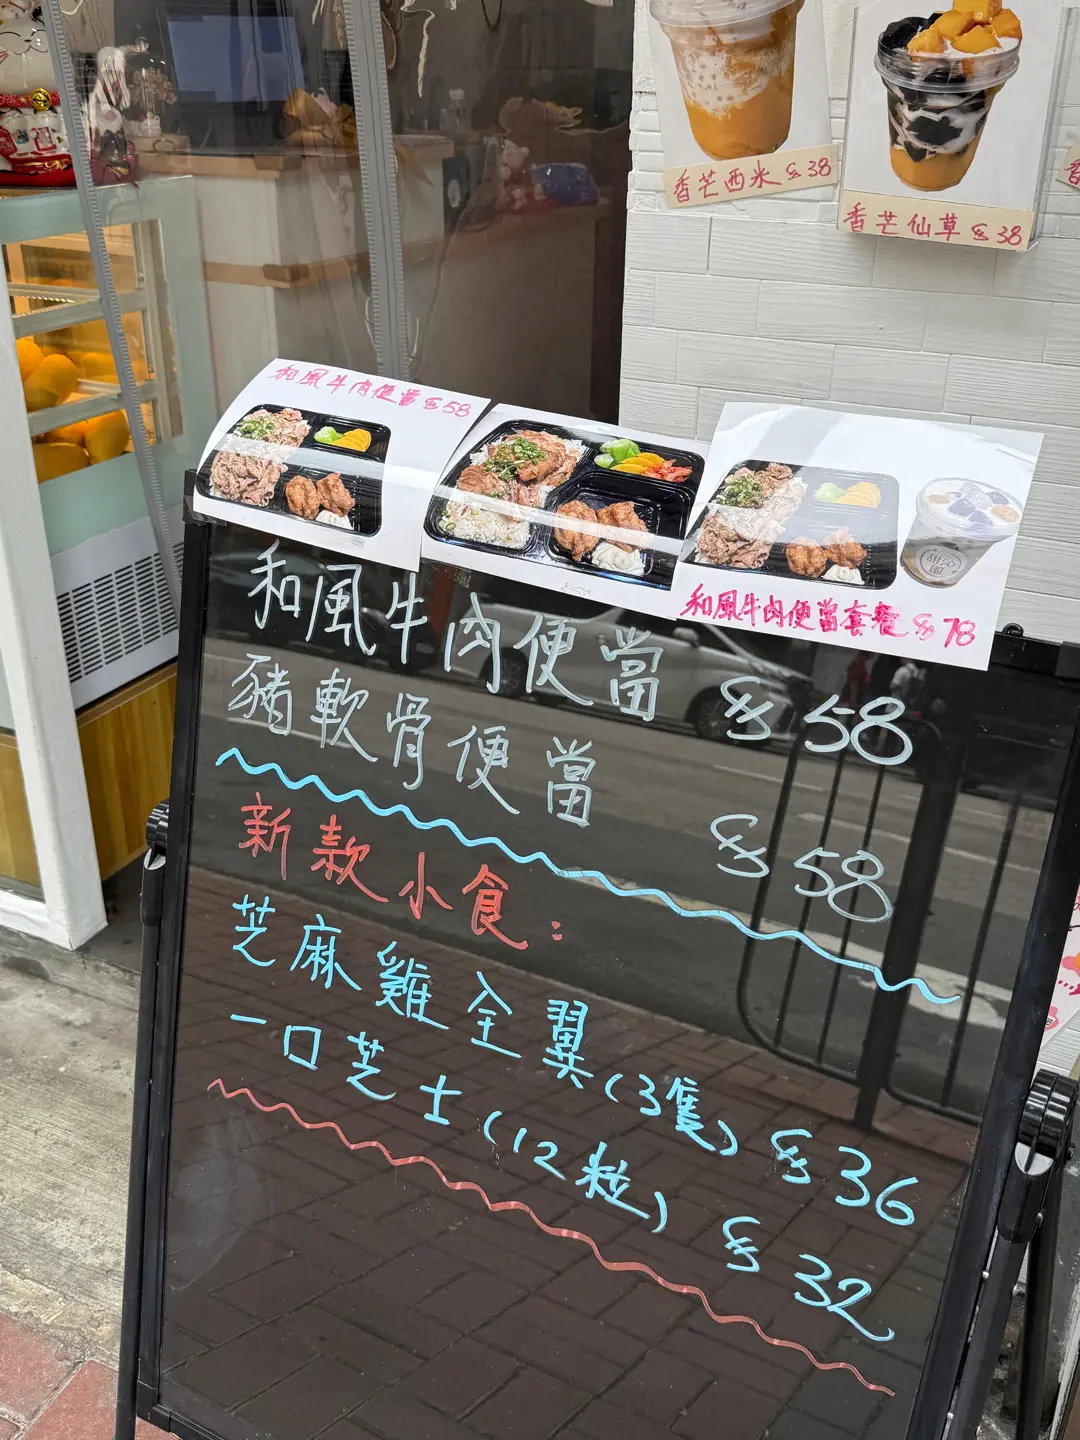 香芒西米 $38
香芒仙草 $38
和風牛肉便當 $58
和風牛肉便當套餐 $78
甜沁園
和風牛肉便當 $58
豬軟骨便當 $58
新款小食：
芝麻雞全翼(3隻) $36
一口芝士(12粒) $32